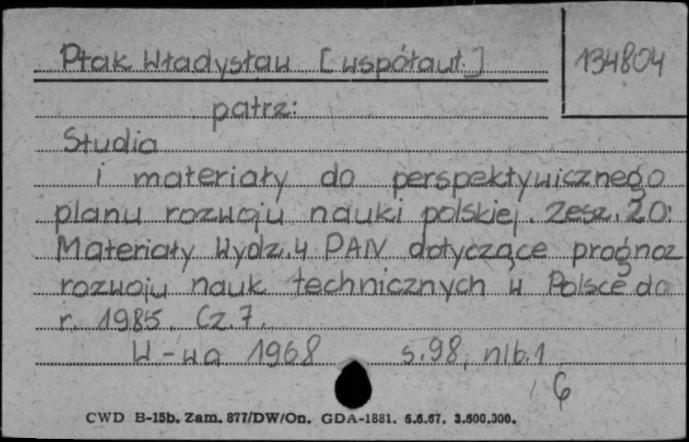 Ptak Władysław [współaut.] 134804
patrz:
Studia
i materiały do perspektywicznego
planu rozwoju nauki polskiej. Zesz. 20:
Materiały Wydz. 4 PAN dotyczące prognoz
rozwoju nauk technicznych w Polsce do
r. 1985. Cz. 7.
W-wa 1968 s. 98, nlb. 1
6
CWD B-15b. Zam. 877/DW/On. GDA-1881. 6.6.67. 3.500.000.